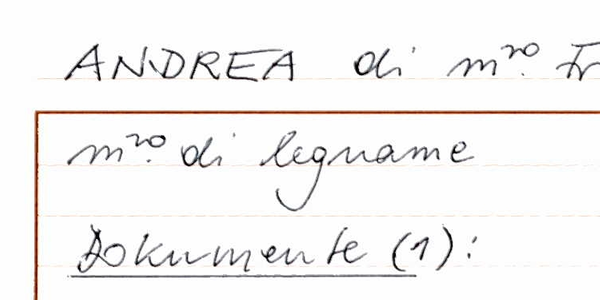 ANDREA di m^ro. Fr
m^ro. di legname
Dokumente (1):